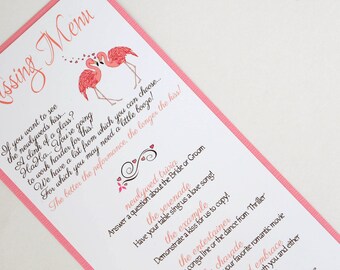 issing Menu
If you want to see
the newlyweds kiss...
of a glass?
You're going
to work harder for this!
We have a list from which you can choose...
For which you may need a little booze!
The better the performance, the longer the kiss!
newlywed trivia
Answer a question about the Bride or Groom
the serenade
Have your table sing us a love song!
the example
Demonstrate a kiss for us to copy!
the entertainer
conga line or the dance from "Thriller"
charade
your favorite romantic movie
embrace
with you and either